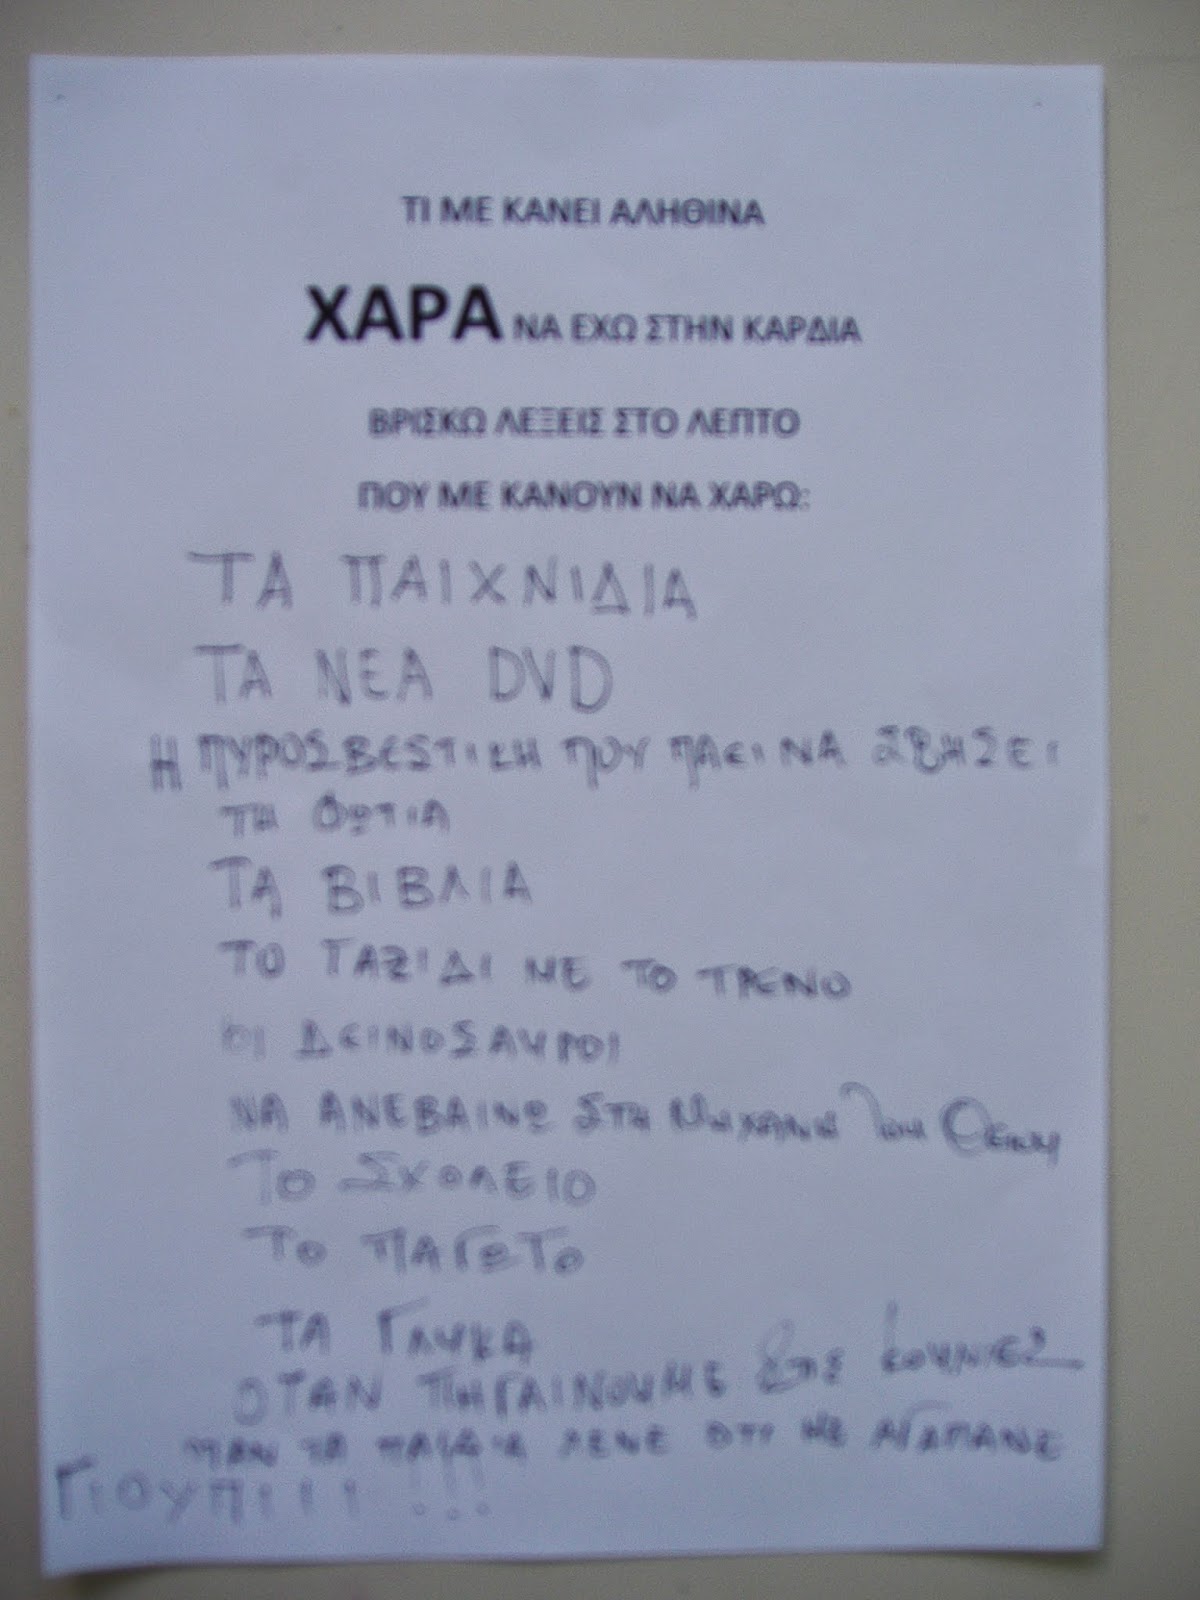 ΤΙ ΜΕ ΚΑΝΕΙ ΑΛΗΘΙΝΑ
ΧΑΡΑ ΝΑ ΕΧΩ ΣΤΗΝ ΚΑΡΔΙΑ
ΒΡΙΣΚΩ ΛΕΞΕΙΣ ΣΤΟ ΛΕΠΤΟ
ΠΟΥ ΜΕ ΚΑΝΟΥΝ ΝΑ ΧΑΡΩ:
ΤΑ ΠΑΙΧΝΙΔΙΑ
ΤΑ ΝΕΑ DVD
Η ΠΥΡΟΣΒΕΣΤΙΚΗ ΠΟΥ ΠΑΕΙ ΝΑ ΣΒΗΣΕΙ
ΤΗ ΦΩΤΙΑ
ΤΑ ΒΙΒΛΙΑ
ΤΟ ΤΑΞΙΔΙ ΜΕ ΤΟ ΤΡΕΝΟ
ΟΙ ΔΕΙΝΟΣΑΥΡΟΙ
ΝΑ ΑΝΕΒΑΙΝΩ ΣΤΗ ΜΗΧΑΝΗ του
ΤΟ ΣΧΟΛΕΙΟ
ΤΟ ΠΑΓΩΤΟ
ΤΑ ΓΛΥΚΑ
ΟΤΑΝ ΠΗΓΑΙΝΟΥΜΕ ΣΤΙΣ ΚΟΥΝΙΕΣ
ΤΑ ΠΑΙΔΙΑ ΛΕΝΕ ΟΤΙ ΜΕ ΑΓΑΠΑΝΕ
ΓΙΟΥΠΙΙΙ !!!